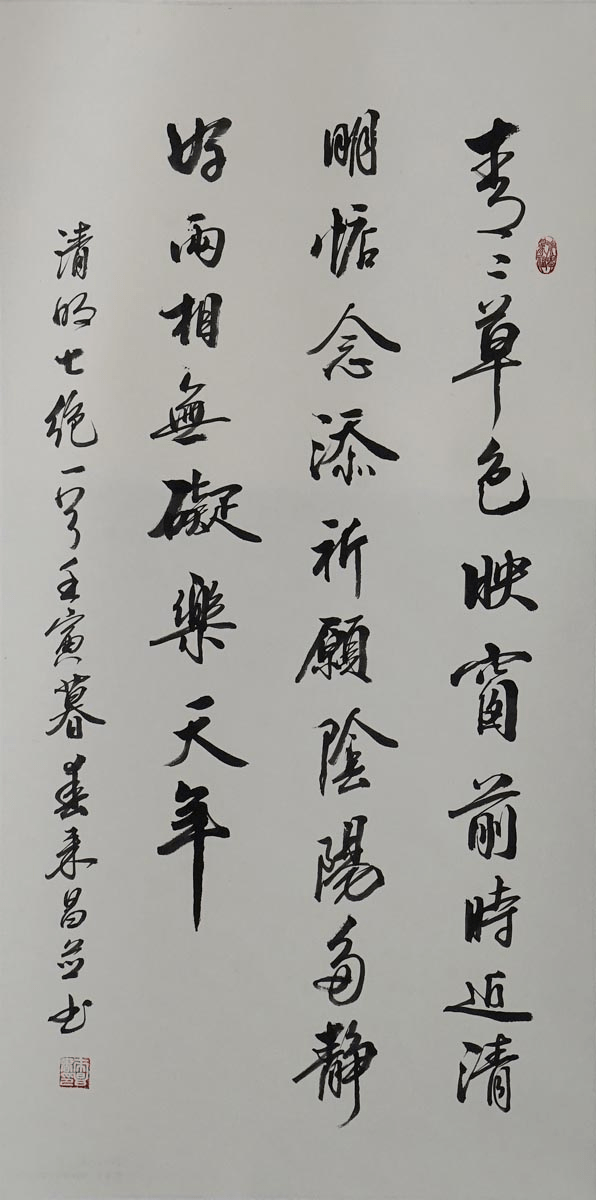 青々草色映窗前時近清
明惦念添祈願陰陽多靜
好兩相無礙樂天年
清明七绝一首壬寅暮春来昌并书